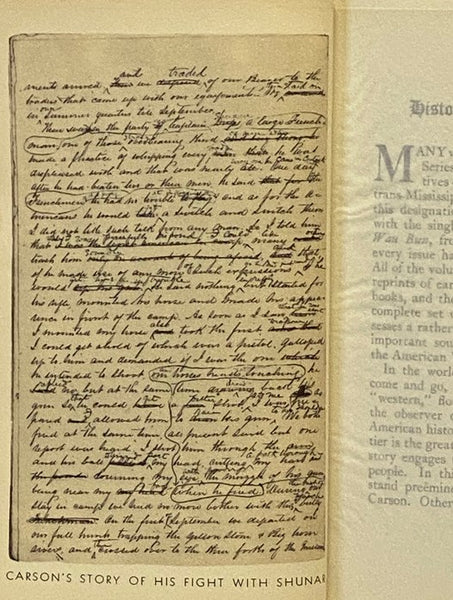 and traded
ments arrived of our Beaver to the
traders that came up with our equipment. We
in Summer quarters till September
there was in the party of Captain a large French-
man, one of those overbearing kind
made a practice of whipping every man that he was
displeased with and that was nearly all. One day
after he had beaten two or three men, he said
Frenchmen he had no trouble and as for the A-
mericans he would take a switch and switch them
I did not like such talk from any man. So I told him
that I was the American in camp. many
thrash him and that
if he made use of any more such expressions,
would He said nothing but started for
his rifle, mounted his horse and made his appear-
ance in front of the camp. As soon as I saw
I mounted my horse also took the first
I could get ahold of which was a pistol. Galloped
up to him and demanded if I was the one
he intended to shoot our horses heads touching he
said no but at the same time drawing
gun so he could shot at me. I was
pared and allowed him to his gun. We both
fired at the same time all present said but one
report was heard. I shot him through the arm
and his ball passed my head, cutting my hair
the powder burning my eye, the muzzle of his gun
being near my head when he fired. During our
stay in camp we had no more bother with this bully
Frenchman. On the first September we departed on
our fall hunt trapping the Yellow Stone & Big horn
rivers, and then crossed over to the three forks of the Missouri
CARSON'S STORY OF HIS FIGHT WITH SHUNAR
Histo
MANY
Series
tives
trans-Mississip
this designati
with the singl
Wau Bun, fr
every issue ha
All of the volu
reprints of car
books, and the
complete set
sesses a rather
important sou
the American W
In the world
come and go,
"western," flo
the observer o
American histo
tier is the great
story engages
people. In thi
stand preëmin
Carson. Other